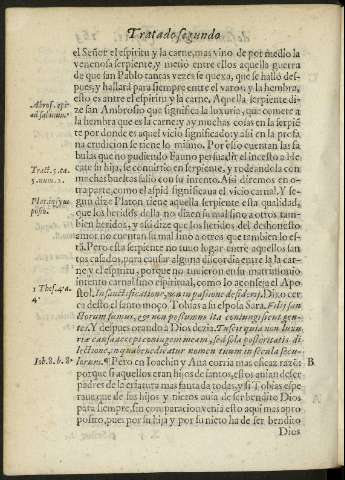 Tratado segundo
el Señor el espiritu y la carne, mas vino de por medio la
venenosa serpiente, y metio entre ellos aquella guerra
de que san Pablo tantas vezes se quexa, que se halló des-
pues, y hallará para siempre entre el varon, y la hembra,
esto es entre el espiritu y la carne. Aquella serpiente di-
Abros. epi.
ze san Ambrosio que significa la luxuria, que comete a
ad sabinum.
la hembra que es la carne: y ay muchas cosas en la serpiē
te por donde es aquel vicio significado: y assi en la profa
na erudicion se tiene lo mismo. Por esso cuentan las fa
bulas que no pudiendo Fauno persuadir el incesto a He
cate su hija, se conuirtio en serpiente, y rodeandola con
Tract. 5. ca.
muchas bueltas salio con su intento. Assi diremos en o-
5. num. 2.
tra parte, como el aspid significaua el vicio carnal. Y se-
gun dize Platon tiene aquella serpiente esta qualidad,
que los heridos della no dizen su mal sino a otros tam-
posio.
bien heridos, y assi dize que los heridos del deshonesto
amor no cuentan su mal sino a otros que tambien lo es-
tā. Pero esta serpiente no tuuo lugar entre aquellos san
tos casados, para causar alguna discordia entre la la car
ne y el espiritu, porque no tuuieron en su matrimonio
intento carnal sino espiritual, como lo aconseja el Apos
1 Thes. 4. a.
tol. In sanctificatione, non in pasione desiderij. Dixo cer
4.
ca desto el santo moço Tobias a su esposa Sara. Filij san
ctorum sumus, & non possumus ita coniungi sicut gen-
tes. Y despues orando a Dios dezia. Tu scis quia non luxu
ria causa accepi coniugem meam, sed sola posteritatis di
lectione, in qua benedicatur nomen tuum in secula secu-
lorum. ¶ Pero en Ioachin y Ana corria mas eficaz razō: B
porque si aquellos eran hijos de santos, estos auian de ser
padres de la criatura mas santa de todas, y si Tobias espe
raua que de sus hijos y nietos auia de ser bendito Dios
para siempre, sin comparacion venia esto aqui mas apro
posito, pues por su hija y por su nieto ha de ser bendito
Dios